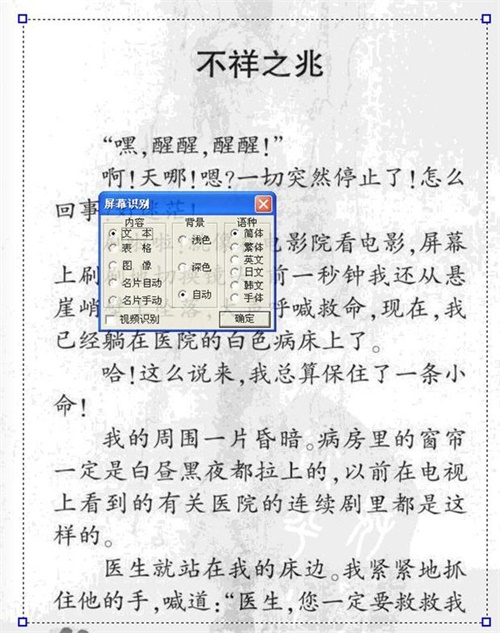 不祥之兆
“嘿,醒醒,醒醒!”
啊!天哪!嗯?一切突然停止了!怎么
回事
电影院看电影,屏幕
上刷 前一秒钟我还从悬
崖峭 呼喊救命,现在,我
已经躺在医院的白色病床上了。
哈!这么说来,我总算保住了一条小
命!
我的周围一片昏暗。病房里的窗帘
一定是白昼黑夜都拉上的,以前在电视
上看到的有关医院的连续剧里都是这
样的。
医生就站在我的床边。我紧紧地抓
住他的手,喊道:“医生,您一定要救救我
屏幕识别
内容
文 本
表 格
图 像
名片自动
名片手动
视频识别
背景
浅色
深色
自动
语种
简体
繁体
英文
日文
韩文
手体
确定